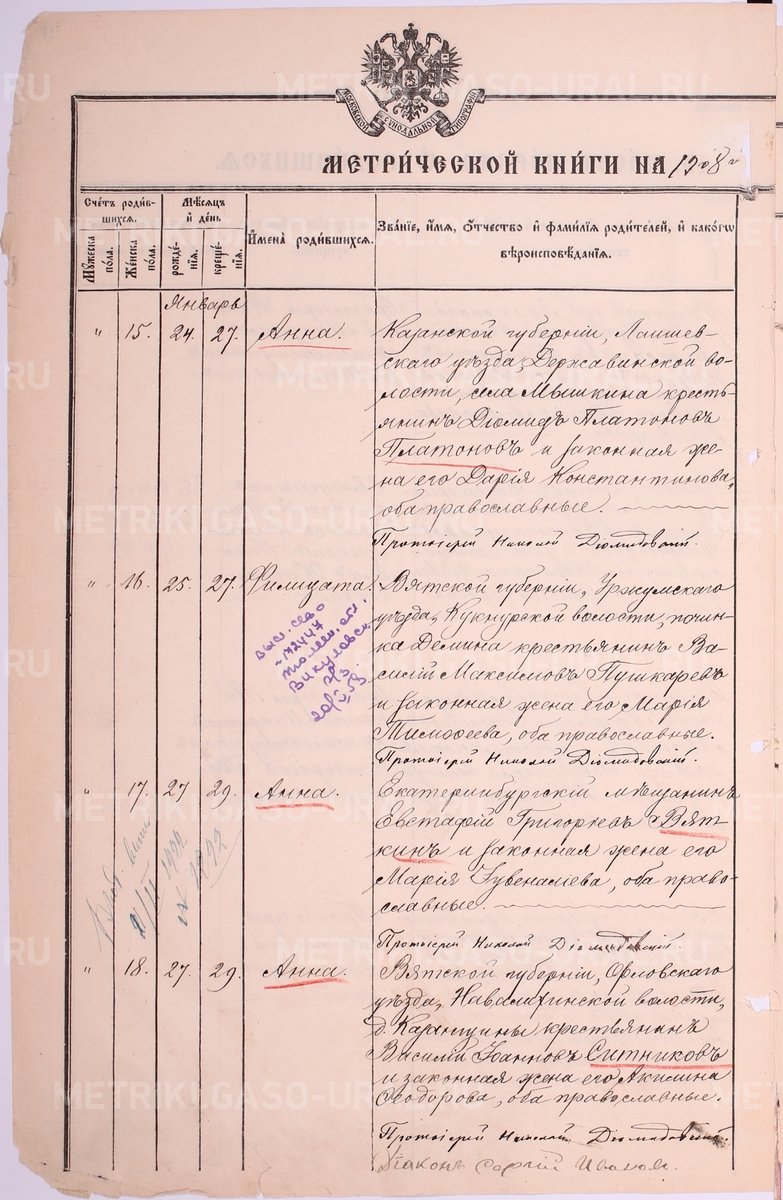 МОСКОВСКОЙ СѴНОДАЛЬНОЙ ТИПОГРАФІИ
МЕТРИ́ЧЕСКОЙ КНИ́ГИ НА 1908 й
Сче́тъ роди́в-
шихсѧ.
Мѣ́сѧцъ
и де́нь
Имена̀ роди́вшихсѧ.
Зва́нїе, и́мѧ, ѻ́тчество и фами́лїѧ роди́телей, и како́гѡ
вѣроисповѣ́данїѧ.
Мꙋ́жеска
по́ла.
Же́нска
по́ла.
рожде́-
нїѧ.
креще́-
нїѧ.
Январь
" 15. 24. 27. Анна. Казанской губерніи, Лаишев-
скаго уѣзда, Державинской во-
лости, села Мышкина кресть-
янинъ Діомидъ Платоновъ
Платоновъ и законная же-
на его Дарія Константинова,
оба православные.
Протоіерей Николай Діомидовскій.
" 16. 25. 27. Филицата. Вятской губерніи, Уржумскаго
уѣзда, Кукнурской волости, почин-
ка Демина крестьянинъ Ва-
силій Максимовъ Пушкаревъ
и законная жена его Марія
Тимоѳеева, оба православные.
Протоіерей Николай Діомидовскій.
выс. св-во
тюмен. обл.
Викуловск.
" 17. 27 29. Анна. Екатеринбургскій мѣщанинъ
Евстафій Григорьевъ Вят-
кинъ и законная жена его
Марія Іувеналіева, оба право-
славные.
Протоіерей Николай Діомидовскій.
" 18. 27. 29. Анна. Вятской губерніи, Орловскаго
уѣзда, Навалихинской волости,
крестьянинъ
Василій Іоанновъ Ситниковъ
и законная жена его Акилина
Ѳеодорова, оба православные.
Протоіерей Николай Діомидовскій.
Діаконъ Сергій Ивановъ.
METRIKI.GASO-URAL.RU